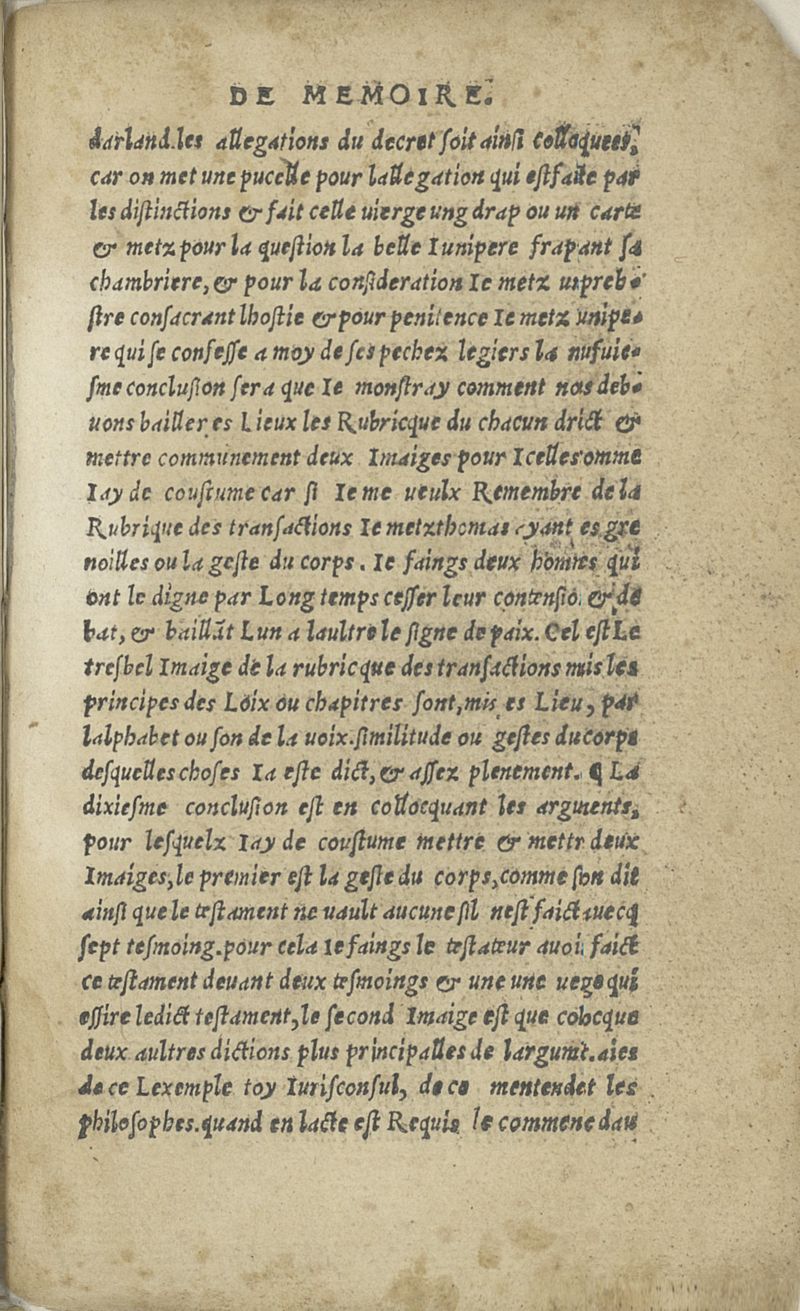 DE MEMOIRE.
darland.les allegations du decret soit ainsi Colloquees,
car on met une pucelle pour lallegation qui est faite par
les distinctions & fait celle uierge ung drap ou un carte
& metz pour la question la belle Iunipere frapant sa
chambriere, & pour la consideration Ie metz unpreb-
stre consacrant lhostie & pour penitence Ie metz Iunipe-
re qui se confesse a moy de ses pechez legiers la nufuie-
sme conclusion sera que Ie monstray comment nos deb-
uons bailler es Lieux les Rubricque du chacun drict &
mettre communement deux Imaiges pour Icellesomme
Iay de coustume car si Ie me ueulx Remembre de la
Rubrique des transactions Ie metzthomas ayant es gre
noilles ou la geste du corps. Ie faings deux homms qui
ont le digne par Long temps cesser leur contensiō. & de
bat, & baillāt Lun a laultre le signe de paix. Cel est Le
tresbel Imaige de la rubricque des transactions mis les
principes des Loix ou chapitres sont, mis es Lieu, par
lalphabet ou son de la uoix.similitude ou gestes du Corps
desquelles choses Ia este dict, & assez plenement. ¶ La
dixiesme conclusion est en collocquant les arguments,
pour lesquelz Iay de coustume mettre & mettr deux
Imaiges, le premier est la geste du corps, comme son dit
ainsi que le testament ne uault aucune sil nest faict auecq
sept tesmoing.pour cela Ie faings le testateur auoi faict
ce testament deuant deux tesmoings & une une uege qui
essire ledict testament, le second Imaige est que colocque
deux aultres dictions plus principalles de largumt. aies
de ce Lexemple toy Iurisconsul, de ce mentendet les
philosophes.quand en lacte est Requis le commene dau